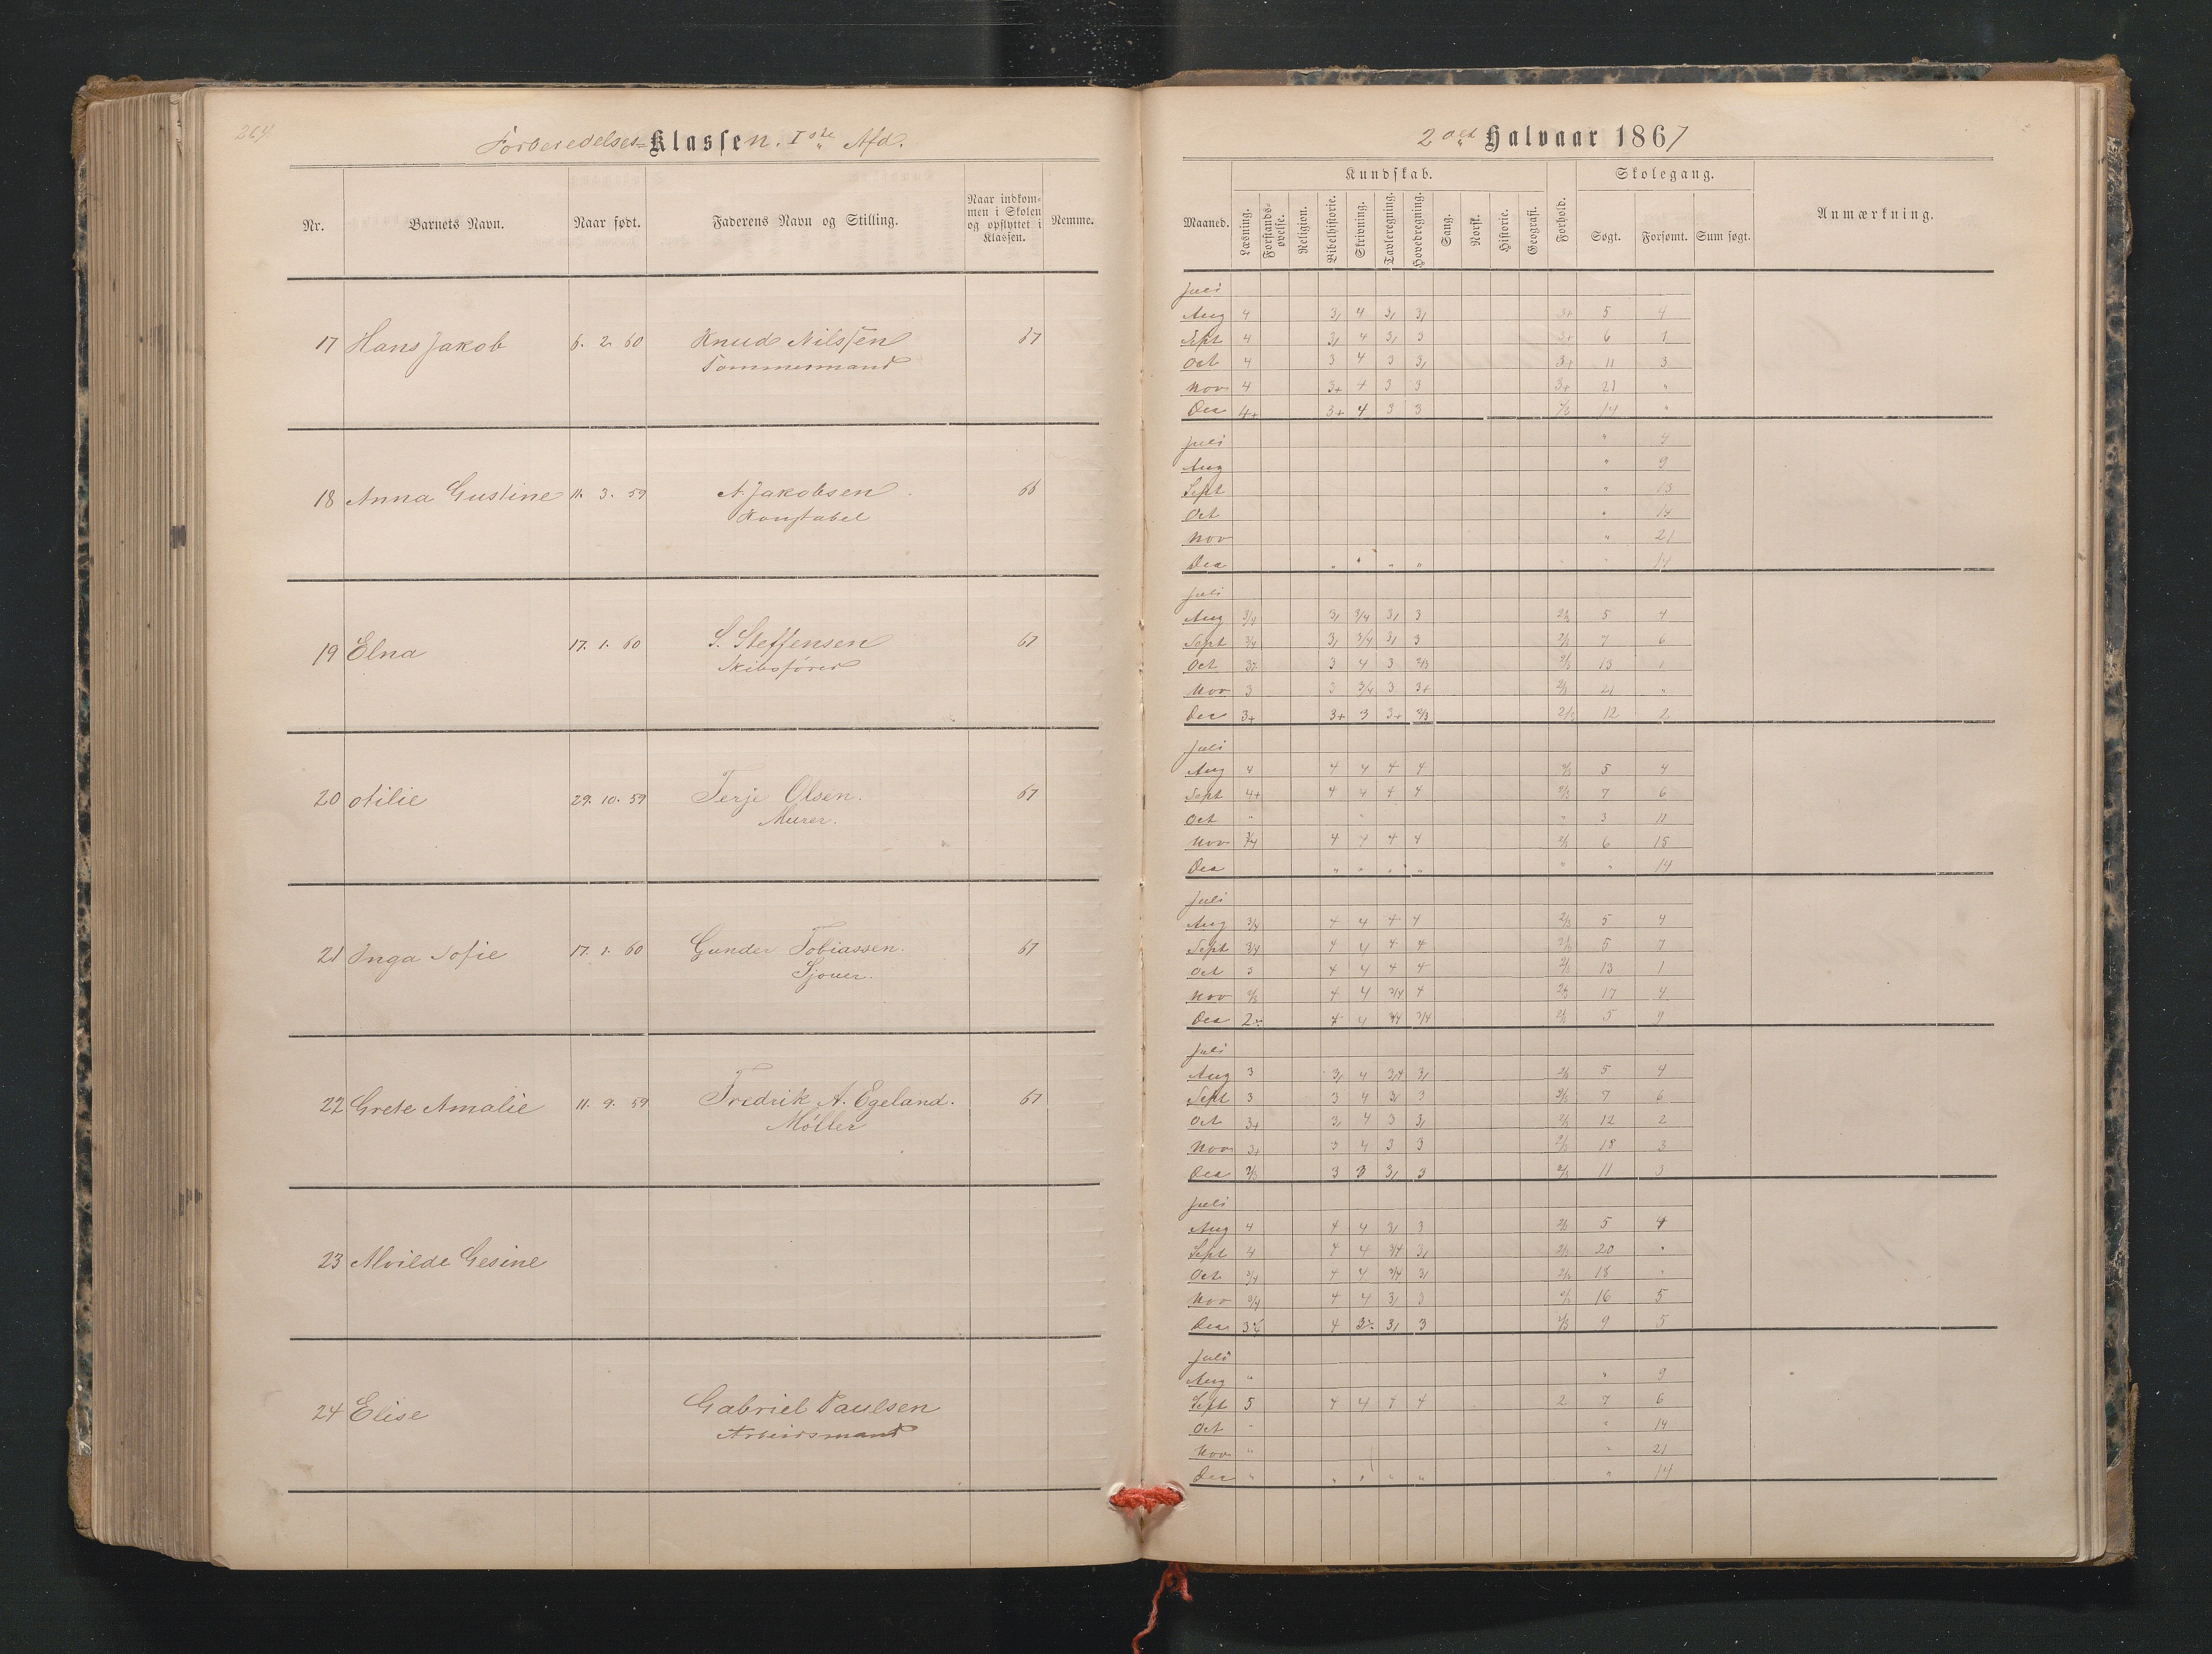 264
Forberedelses-Klassen. Iste Afd.
Nr. Barnets Navn. Naar født. Faderens Navn og Stilling. Naar indkommen i Skolen og opflyttet i Klassen. Nemme.
17 Hans Jakob 6. 2. 60 Knud Nilssen 67
Tømmermand
18 Anna Gustine 11. 3. 59 A. Jakobsen 66
Konstabel
19 Elna 17. 1. 60 S. Steffensen 67
Skibsfører
20 Otilie 29. 10. 59 Terje Olsen. 67
Murer.
21 Inga Sofie 17. 1. 60 Gunder Tobiassen. 67
Sjouer.
22 Grete Amalie 11. 9. 59 Fredrik A. Egeland. 67
Møller
23 Alvilde Gesine
24 Elise Gabriel Paulsen
Arbeidsmand
2det Halvaar 1867
Kundskab. Skolegang.
Maaned. Læsning. Forstandsøvelse. Religion. Bibelhistorie. Skrivning. Tavleregning. Hovedregning. Sang. Norsk. Historie. Geografi. Forhold. Søgt. Forsømt. Sum søgt. Anmærkning.
Juli
Aug 4 3, 4 3, 3, 3+ 5 4
Sept 4 3, 4 3, 3 3+ 6 1
Oct 4 3 4 3 3, 3+ 11 3
Nov 4 3+ 4 3 3 3+ 21 "
Dec 4+ 3+ 4 3 3 2/3 14 "
Juli " 4
Aug " 9
Sept " 13
Oct " 14
Nov " 21
Dec " " " " " 14
Juli
Aug 3/4 3, 3/4 3, 3 2/3 5 4
Sept 3/4 3, 3/4 3, 3 2/3 7 6
Oct 3 4 3 2/3 2/3 13 1
Nov 3 3 3/4 3 3+ 2/3 21 "
Dec 3+ 3+ 3 3+ 2/3 2/3 12 2
Juli
Aug 4 4 4 4 4 2/3 5 4
Sept 4+ 4 4 4 4 2/3 7 6
Oct " " " 3 11
Nov 3/4 4 4 4 4 2/3 6 15
Dec " " " " " " 14
Juli
Aug 3/4 4 4 4 4 2/3 5 4
Sept 3/4 4 4 4 4 2/3 5 7
Oct 3 4 4 4 4 2/3 13 1
Nov 2/3 4 4 3/4 4 2/3 17 4
Dec 4 4 3/4 3/4 2/3 5 9
Juli
Aug 3 3, 4 3/4 3, 2/3 5 4
Sept 3 3 4 3, 3 2/3 7 6
Oct 3+ 3, 4 3 3, 2/3 12 2
Nov 3+ 3 4 3 3 2/3 18 3
Dec 2/3 3 3 3, 3 2/3 11 3
Juli
Aug 4 4 4 3, 3 2/3 5 4
Sept 4 4 4 3/4 3, 2/3 20 "
Oct 3/4 4 4 3/4 3, 2/3 18 "
Nov 3/4 4 4 3, 3 2/3 16 5
Dec 4 3, 3 2/3 9 5
Juli
Aug " " 9
Sept 5 4 4 4 4 2 7 6
Oct " " 14
Nov " " 21
Dec " " " " " " 14